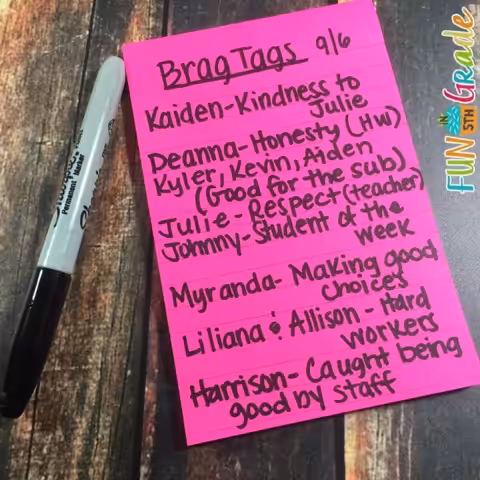 Brag Tags 9/6
Kaiden-Kindness to
Julie
Deanna-Honesty (HW)
Kyler, Kevin, Aiden
(Good for the sub)
Julie-Respect (teacher)
Johnny-Student of the
Week
Myranda- Making good
Choices
Liliana & Allison - Hard
Workers
Harrison- Caught being
good by staff
Permanent Marker
FUN IN 5TH Grade